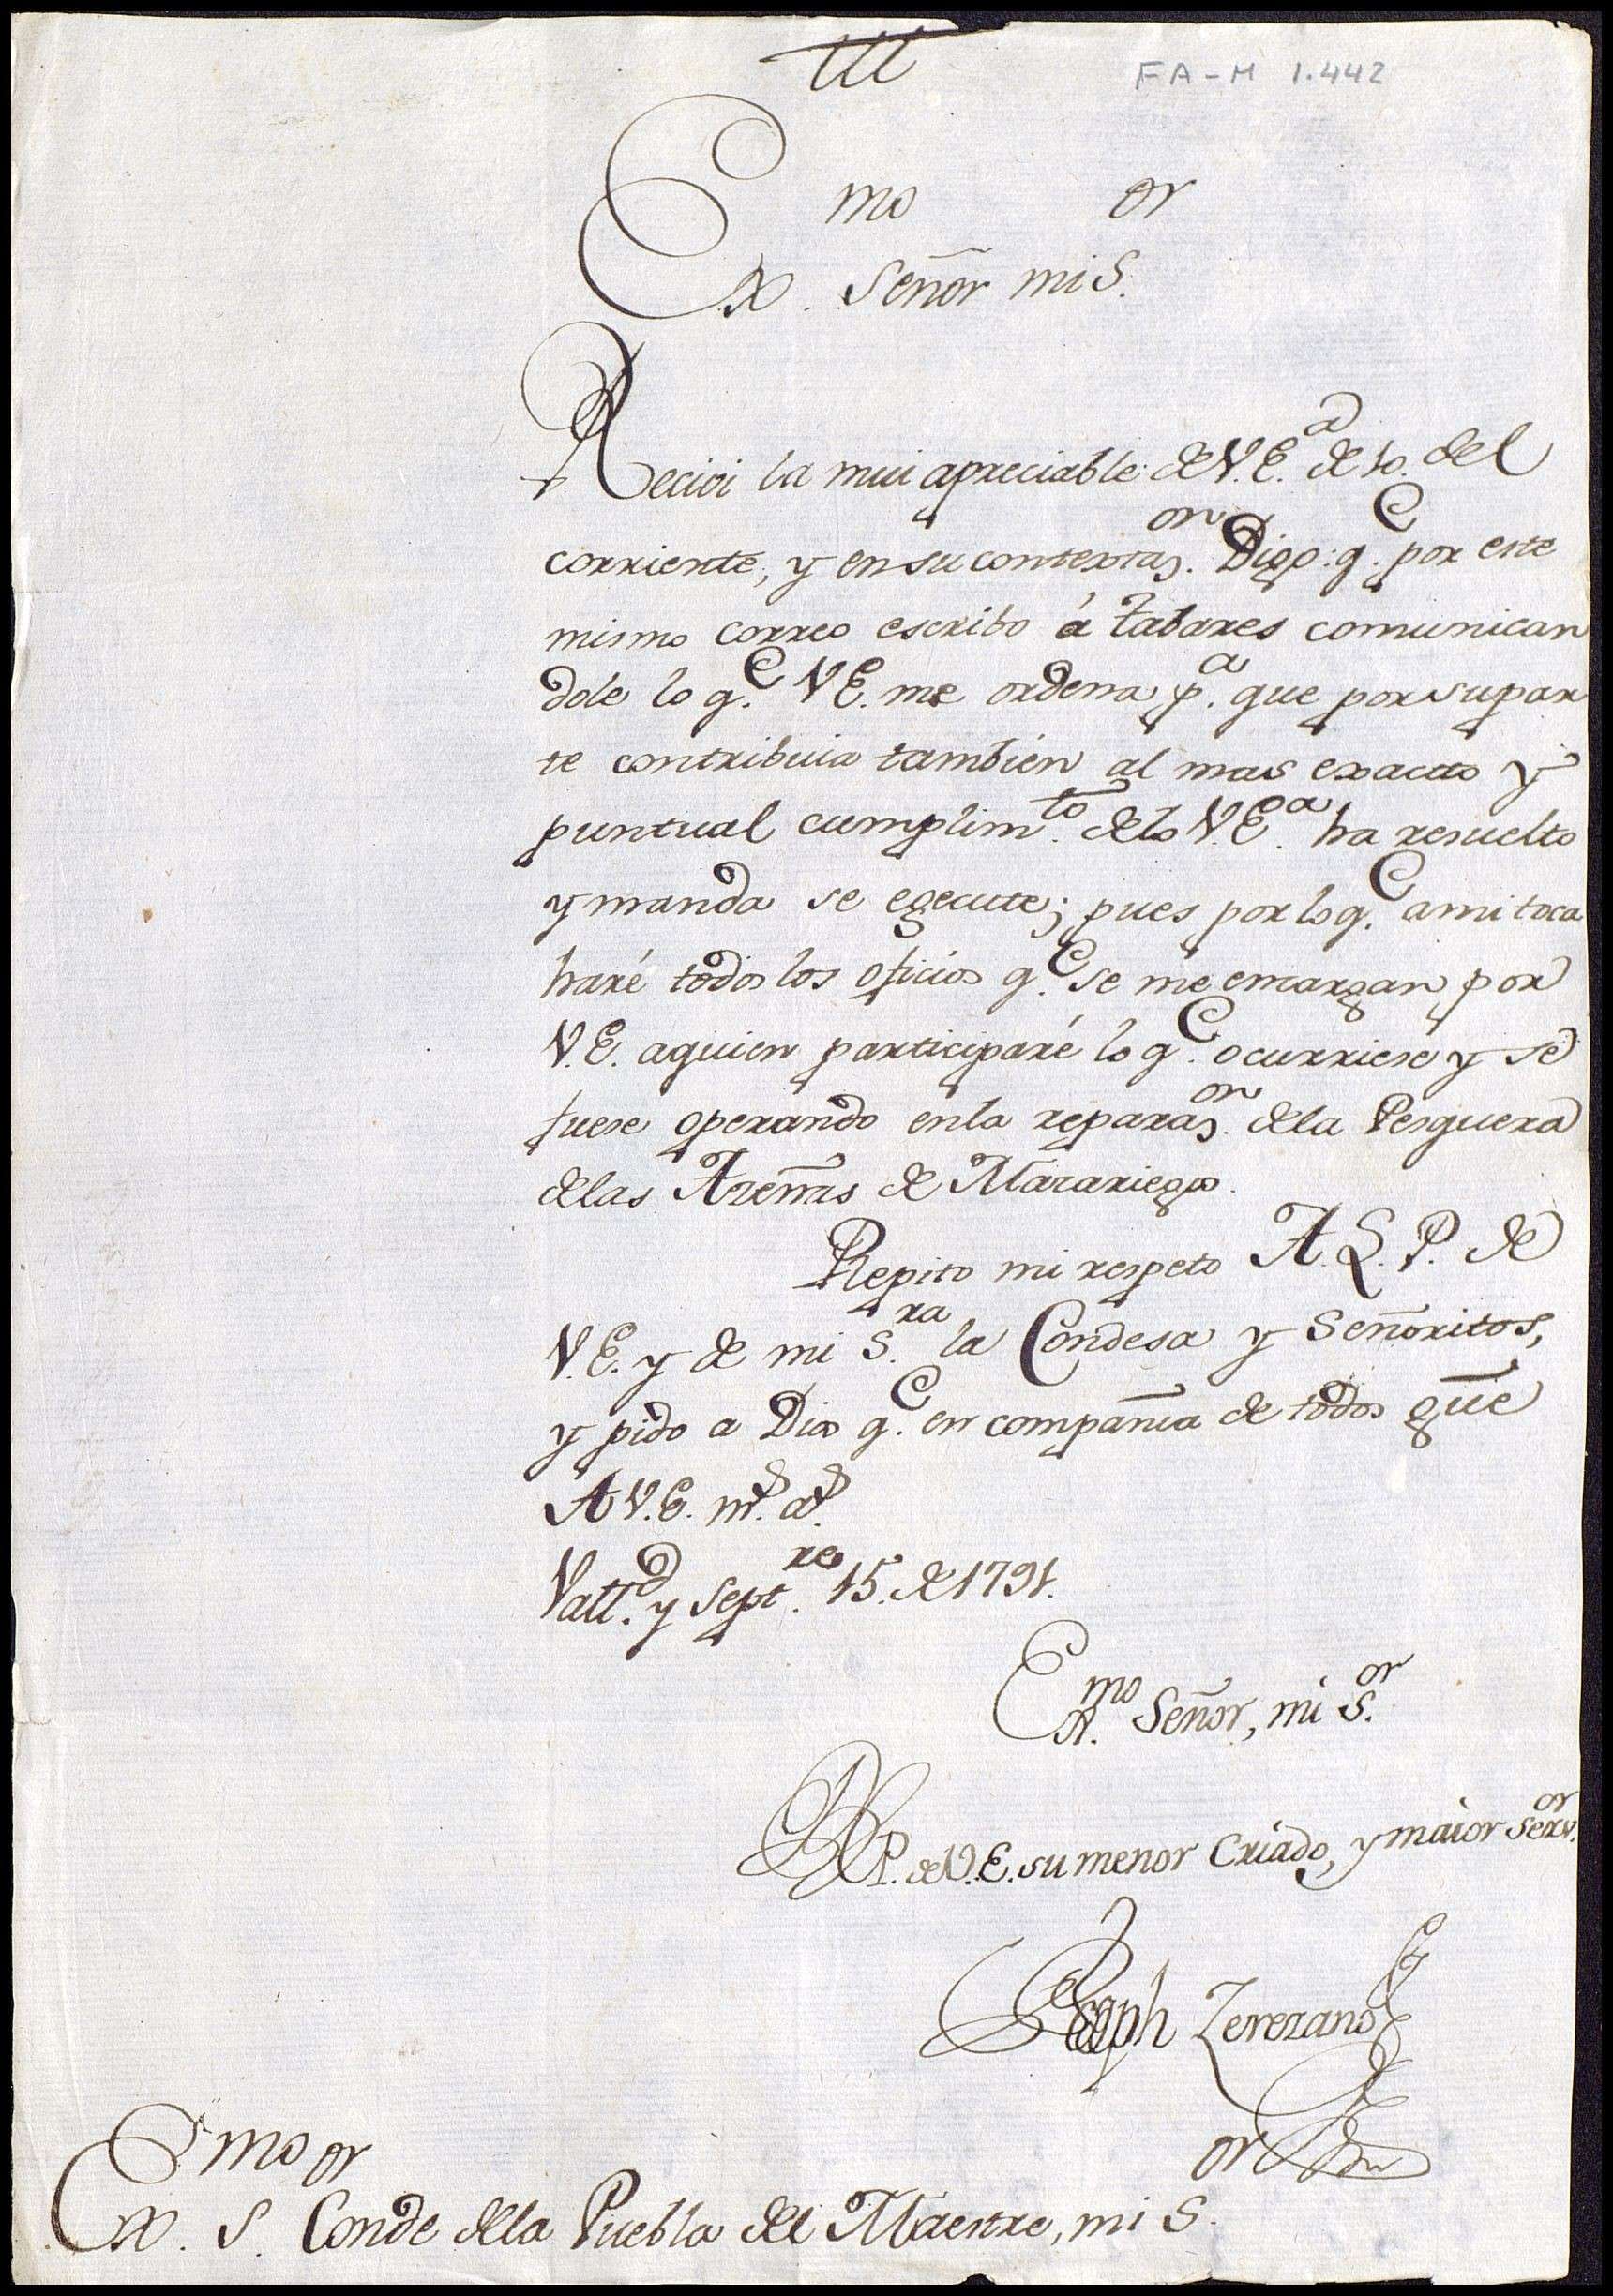 FA-M 1.442
Exmo. Señor mi Sor.
Recivi la mui apreciable de V.Ea. de 10. del
corriente, y en su contextazon. Digo: qe. por este
mismo correo escribo á Tabares comunican
dole lo qe. VE. me ordena pa. que por su par
te contribuia tambien al mas exacto y
puntual cumplimto. de lo V.Ea. ha resuelto
y manda se egecute; pues por lo qe. a mi toca
haré todos los oficios qe. se me encargan por
V.E. a quien participaré lo qe. ocurriese y se
fuese operando en la reparazon. de la Pesquera
de las Azeñas de Mazariegos.
Repito mi respeto A.L.P. de
V.E. y de mi Sra. la Condesa y Señoritos,
y pido a Dios qe. en compañia de todos gũe
A V.E. ms. as.
Valld. y Septre. 15. de 1791.
Exmo. Señor, mi Sor.
P. de V.E. su menor Criado, y maior Servor.
Joseph Zerezano
Exmo. Sor. Conde de la Puebla del Maestre, mi Sor.